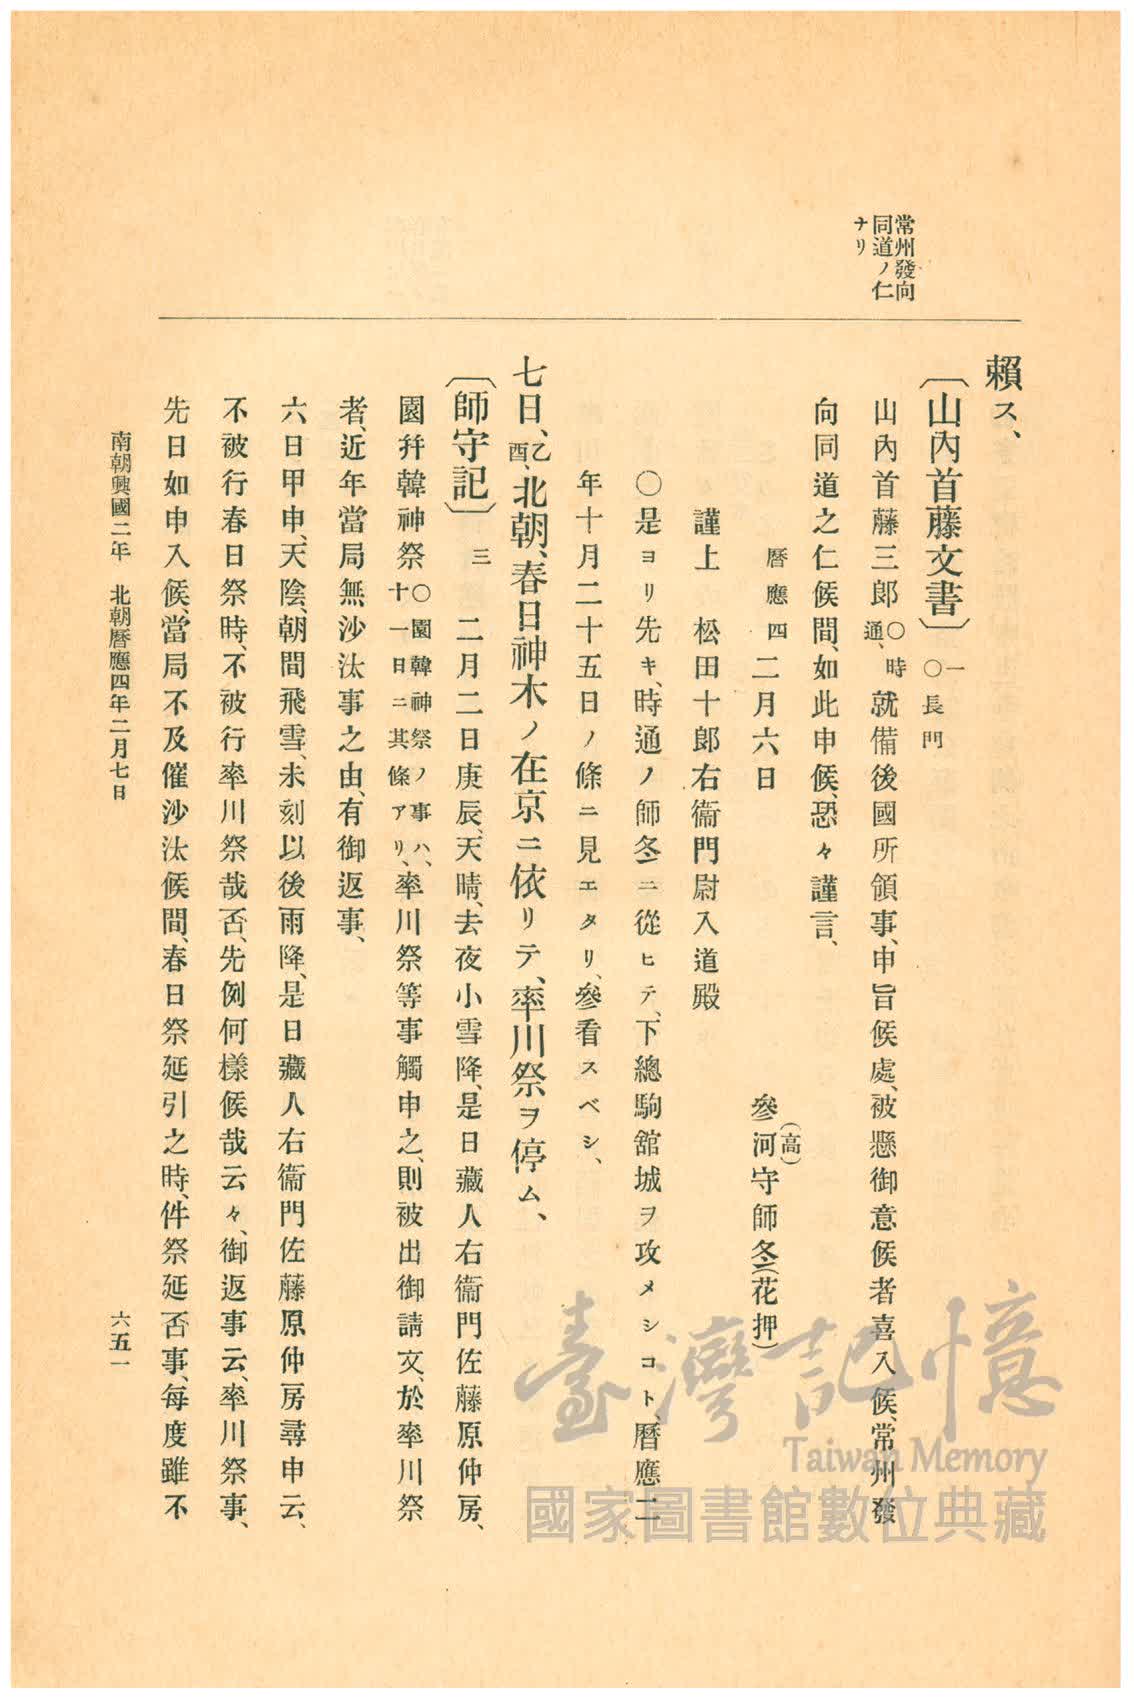 常州發向
同道ノ仁
ナリ
賴ス、
〔山內首藤文書〕一〇長門
山內首藤三郎〇時通、就備後國所領事、申旨候處、被懸御意候者喜入候、常州發
向同道之仁候間、如此申候、恐々謹言、
曆應四二月六日　參河守師冬(花押)
(高)
謹上　松田十郎右衞門尉入道殿
〇是ヨリ先キ、時通ノ師冬ニ從ヒテ、下總駒舘城ヲ攻メシコト、曆應二
年十月二十五日ノ條ニ見エタリ、參看スベシ、
七日、乙酉、北朝、春日神木ノ在京ニ依リテ、率川祭ヲ停ム、
〔師守記〕三　二月二日庚辰、天晴、去夜小雪降、是日藏人右衞門佐藤原仲房、
園幷韓神祭〇園韓神祭ノ事ハ、十一日ニ其條アリ、率川祭等事觸申之、則被出御請文、於率川祭
者、近年當局無沙汰事之由、有御返事、
六日甲申、天陰、朝間飛雪、未刻以後雨降、是日藏人右衞門佐藤原仲房尋申云、
不被行春日祭時、不被行率川祭哉否、先例何樣候哉云々、御返事云、率川祭事、
先日如申入候、當局不及催沙汰候間、春日祭延引之時、件祭延否事、每度雖不
南朝興國二年　北朝曆應四年二月七日
六五一
臺灣記憶
Taiwan Memory
國家圖書館數位典藏